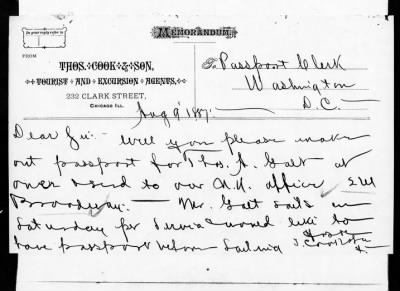 In your reply refer to
MEMORANDUM.
FROM
THOS. COOK & SON,
TOURIST AND EXCURSION AGENTS,
232 CLARK STREET,
CHICAGO ILL.
To Passport Clerk
Washington
D.C.
Aug 9 1887
Dear Sir:- Will you please make
out passport for Thos. A. Galt at
once & send to our N.Y. office 
Broadway. — Mr. Galt sails on
Saturday per Servia & would like to
have passport before sailing